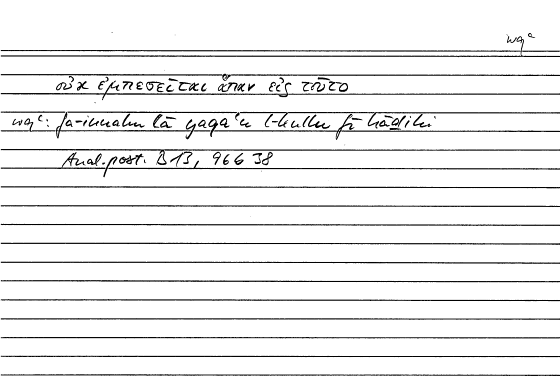 wqʿ
οὐκ ἐμπεσεῖται ἅπαν εἰς τοῦτο
wqʿ: fa-innahu lā yaqaʿu l-kullu fī hāḏihi
Anal.post. B 13, 96b 38